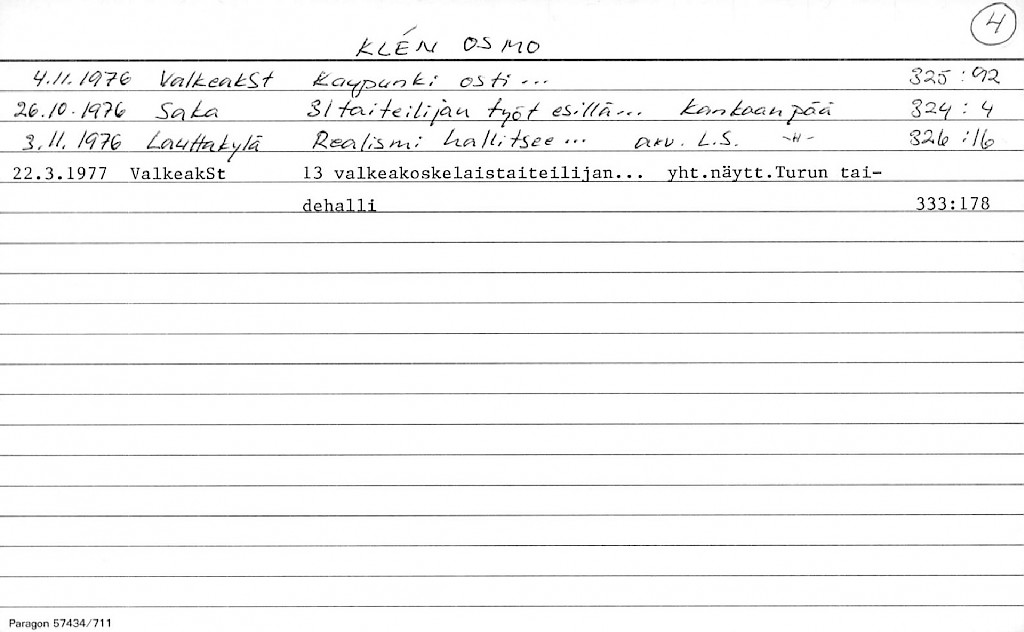 4
KLÉN OSMO
4.11.1976 ValkeakSt Kaupunki osti... 325:92
26.10.1976 SaKa 31 taiteilijan työt esillä... Kankaanpää 324:4
3.11.1976 Lauttakylä Realismi hallitsee... arv. L.S. -"- 326:16
22.3.1977 ValkeakSt 13 valkeakoskelaistaiteilijan... yht.näytt.Turun tai-
dehalli 333:178
Paragon 57434/711